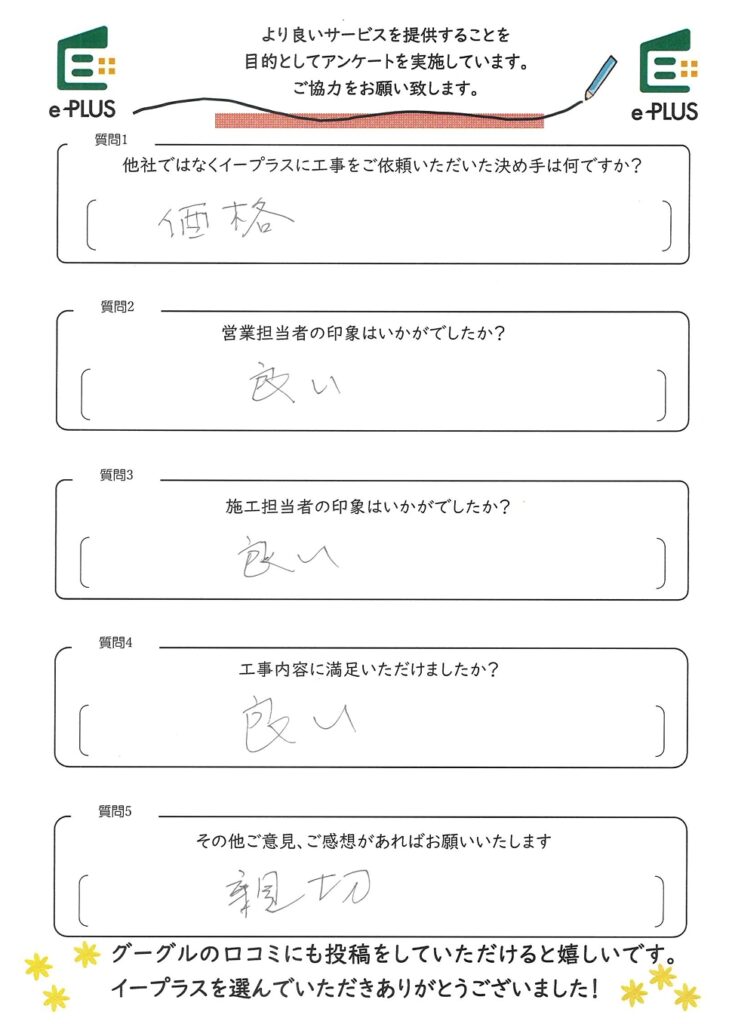 より良いサービスを提供することを
目的としてアンケートを実施しています。
ご協力をお願い致します。
e-PLUS
e-PLUS
質問1
他社ではなくイープラスに工事をご依頼いただいた決め手は何ですか?
価格
質問2
営業担当者の印象はいかがでしたか?
良い
質問3
施工担当者の印象はいかがでしたか?
良い
質問4
工事内容に満足いただけましたか?
良い
質問5
その他ご意見、ご感想があればお願いいたします
親切
グーグルの口コミにも投稿をしていただけると嬉しいです。
イープラスを選んでいただきありがとうございました!